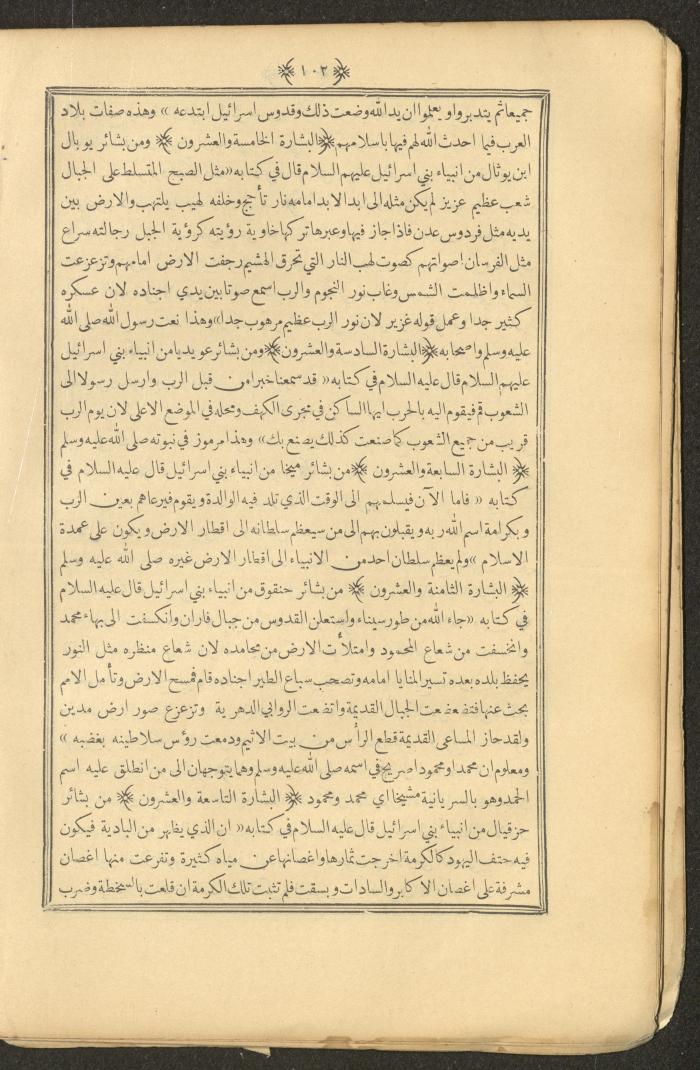 ١٠٢
جميعا ثم يتدبروا ويعلموا ان يد الله وضعت ذلك وقدوس اسرائيل ابتدعه » وهذه صفات بلاد
العرب فيما احدث الله لهم فيها باسلامهم ﴿البشارة الخامسة والعشرون﴾ ومن بشائر يوبال
ابن يوثال من انبياء بني اسرائيل عليهم السلام قال في كتابه «مثل الصبح المتسلط على الجبال
شعب عظيم عزيز لم يكن مثله الى ابد الابد امامه نار تأجج وخلفه لهيب يلتهب والارض بين
يديه مثل فردوس عدن فاذا جاز فيها وعبرها تركها خاوية رؤيته كرؤية الجبل رجالته سراع
مثل الفرسان اصواتهم كصوت لهب النار التي تحرق الهشيم رجفت الارض امامهم وتزعزعت
السماء واظلمت الشمس وغاب نور النجوم والرب اسمع صوتا بين يدي اجناده لان عسكره
كثير جدا وعمل قوله غزير لان نور الرب عظيم مرهوب جدا» وهذا نعت رسول الله صلى الله
عليه وسلم واصحابه ﴿البشارة السادسة والعشرون﴾ ومن بشائر عويديا من انبياء بني اسرائيل
عليهم السلام قال عليه السلام في كتابه « قد سمعنا خبرا من قبل الرب وارسل رسولا الى
الشعوب قم فيقوم اليه بالحرب ايها الساكن في مجرى الكهف ومحله في الموضع الاعلى لان يوم الرب
قريب من جميع الشعوب كما صنعت كذلك يصنع بك» وهذا مرموز في نبوته صلى الله عليه وسلم
﴿ البشارة السابعة والعشرون ﴾ من بشائر ميخا من انبياء بني اسرائيل قال عليه السلام في
كتابه « فاما الآن فيسلمهم الى الوقت الذي تلد فيه الوالدة ويقوم فيرعاهم بعين الرب
وبكرامة اسم الله ربه ويقبلون بهم الى من سيعظم سلطانه الى اقطار الارض ويكون على عمدة
الاسلام » ولم يعظم سلطان احد من الانبياء الى اقطار الارض غيره صلى الله عليه وسلم
﴿ البشارة الثامنة والعشرون ﴾ من بشائر حنقوق من انبياء بني اسرائيل قال عليه السلام
في كتابه «جاء الله من طور سيناء واستعلن القدوس من جبال فاران وانكسفت الى بهاء محمد
وانخسفت من شعاع المحمود وامتلأت الارض من محامده لان شعاع منظره مثل النور
يحفظ بلده بعده تسير المنايا امامه وتصحب سباع الطير اجناده قام فمسح الارض وتأمل الامم
بحث عنها فتضعضعت الجبال القديمة واتضعت الروابي الدهرية وتزعزع صور ارض مدين
ولقد حاز المساعى القديمة قطع الرأس من بيت الاثيم ودمعت رؤس سلاطينه بغضبه »
ومعلوم ان محمد او محمودا صريح في اسمه صلى الله عليه وسلم وهما يتوجهان الى من انطلق عليه اسم
الحمد وهو بالسريانية مشيخا اي محمد ومحمود ﴿ البشارة التاسعة والعشرون ﴾ من بشائر
حزقيال من انبياء بني اسرائيل قال عليه السلام في كتابه « ان الذي يظهر من البادية فيكون
فيه حتف اليهود كالكرمة اخرجت ثمارها واغصانها عن مياه كثيرة وتفرعت منها اغصان
مشرفة على اغصان الاكابر والسادات وبسقت فلم تثبت تلك الكرمة ان قلعت بالسخطة وضرب